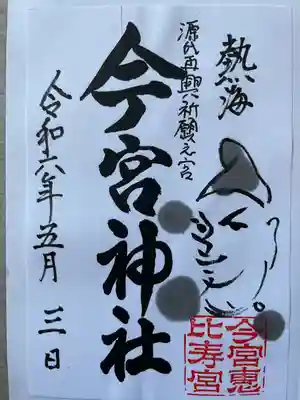 熱海
源氏再興祈願 宮
今宮神社
令和六年五月 三日
今宮惠
比寿宮